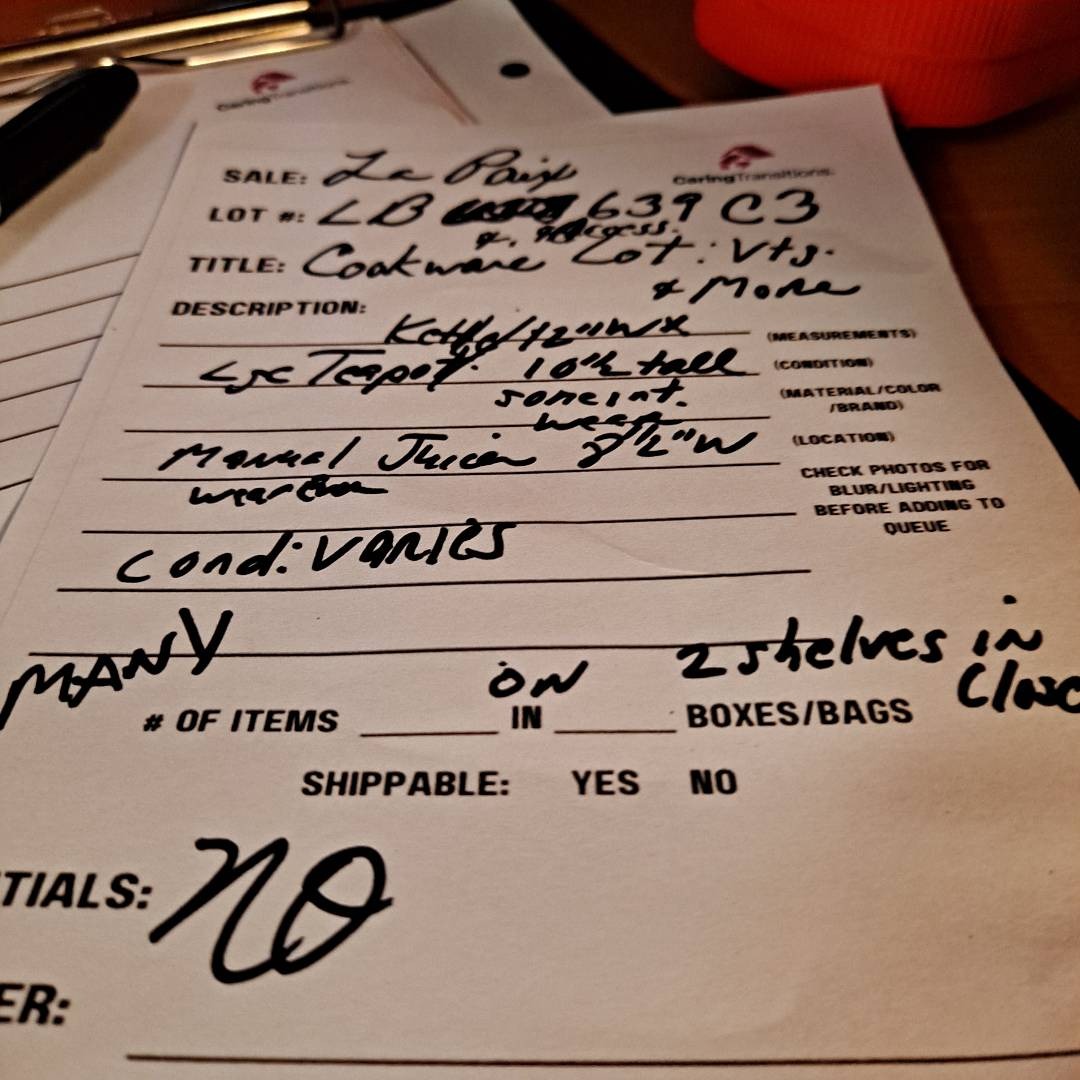 CaringTransitions
CaringTransitions.
SALE: La Paix
LOT #: LB 639 C3
&. Access.
TITLE: Cookware Lot: Vtg.
& More
DESCRIPTION:
12"W x (MEASUREMENTS)
Lge Teapot: 10"½ tall (CONDITION)
some int. (MATERIAL/COLOR
wear /BRAND)
Manual Juicer 8½"W (LOCATION)
wear CHECK PHOTOS FOR
BLUR/LIGHTING
BEFORE ADDING TO
QUEUE
Cond: VARIES
MANY ON 2 shelves in
Close
# OF ITEMS ____ IN ____ BOXES/BAGS
SHIPPABLE: YES NO
TIALS: NO
ER: